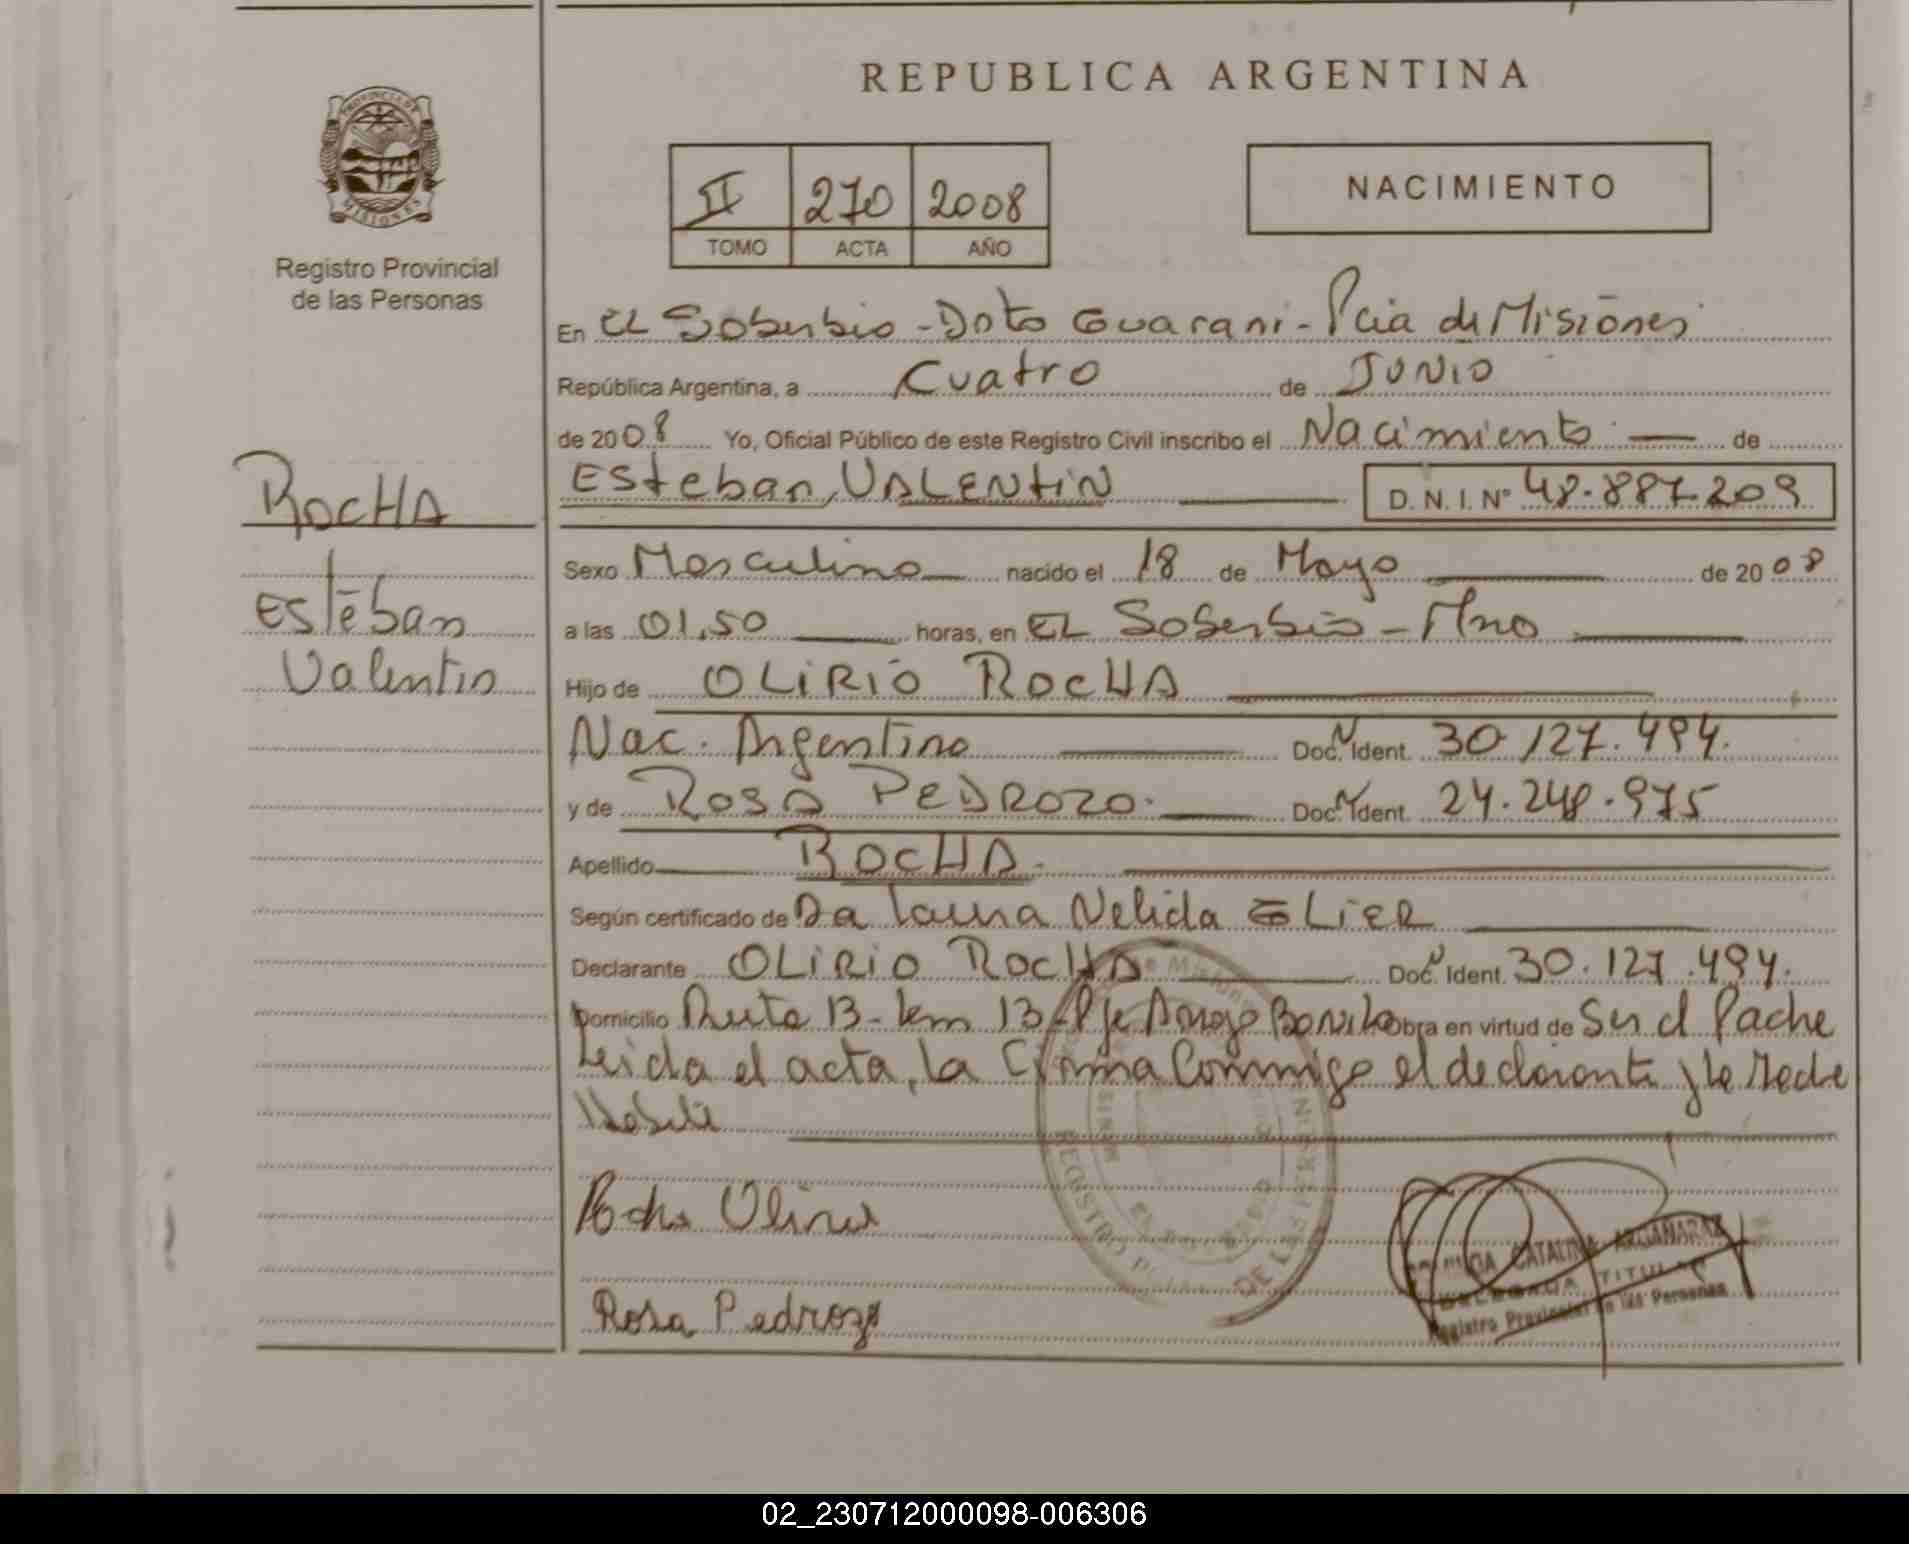 REPUBLICA ARGENTINA
PROVINCIA DE
MISIONES
Registro Provincial
de las Personas
II 270 2008
TOMO ACTA AÑO
NACIMIENTO
En El Soberbio - Dpto Guarani - Pcia de Misiones
República Argentina, a Cuatro de JUNIO
de 2008 Yo, Oficial Público de este Registro Civil inscribo el Nacimiento de
Esteban, VALENTIN D. N. I. Nº 48.887.209
ROCHA
Esteban
Valentin
Sexo Masculino nacido el 18 de Mayo de 2008
a las 01,50 horas, en EL Soberbio - Mnes
Hijo de OLIRIO ROCHA
Nac. Argentino Doc. Ident. 30.127.494.
y de ROSA PEDROZO. Doc. Ident. 24.248.975
Apellido ROCHA.
Según certificado de Da Laura Nelida ELIER
Declarante OLIRIO ROCHA Doc. Ident. 30.127.494.
Domicilio Ruta 13 - km 13 - Pje Arroyo Bonito Obra en virtud de Ser el Padre
Leida el acta, la Firma Conmigo el declarante y la Madre
Rocha Olirio
Rosa Pedrozo
CATALINA ARGAÑARAZ
DELEGADA TITULAR
Registro Provincial de las Personas
REGISTRO
DE LAS PERSONAS
02_230712000098-006306